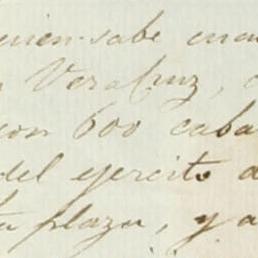 quien sabe cuan
n VeraCruz,
con 600 caba
del ejercito
ta plaza, y a